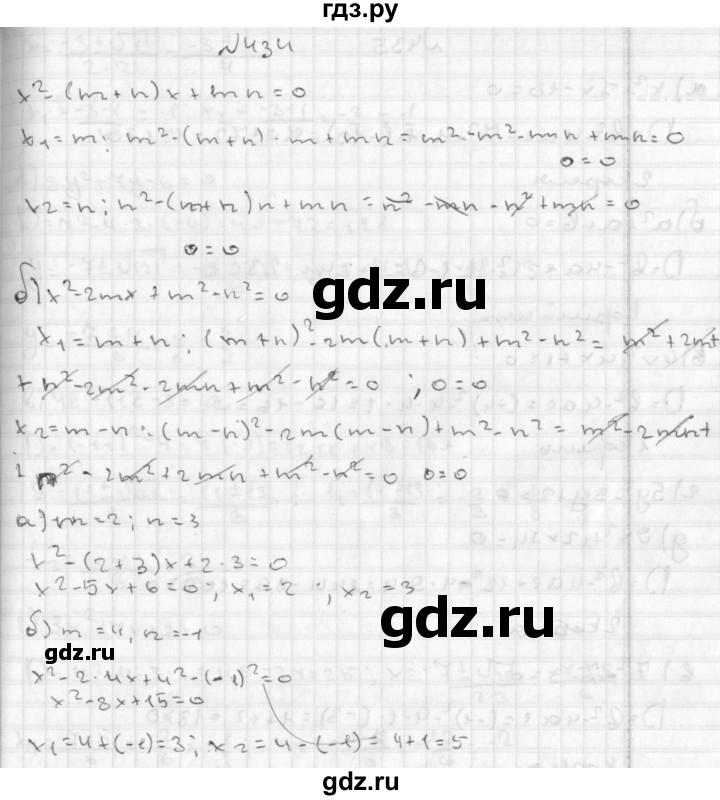 гдз.ру
№434
x² - (m+n)x + mn = 0
x₁ = m; m² - (m+n) · m + mn = m² - m² - mn + mn = 0
0 = 0
x₂ = n; n² - (m+n)n + mn = n² - mn - n² + mn = 0
0 = 0
б) x² - 2mx + m² - n² = 0
gdz.ru
x₁ = m+n; (m+n)² - 2m(m+n) + m² - n² = m² + 2mn+
+ n² - 2m² - 2mn + m² - n² = 0; 0 = 0
x₂ = m-n: (m-n)² - 2m(m-n) + m² - n² = m² - 2mn+
+ n² - 2m² + 2mn + m² - n² = 0 0=0
а) m = 2; n = 3
x² - (2+3)x + 2·3 = 0
x² - 5x + 6 = 0, x₁ = 2; x₂ = 3
gdz.ru
б) m = 4, n = -1
gdz.ru
x² - 2·4x + 4² - (-1)² = 0
x² - 8x + 15 = 0
x₁ = 4 + (-1) = 3; x₂ = 4 - (-1) = 4+1 = 5
gdz.ru